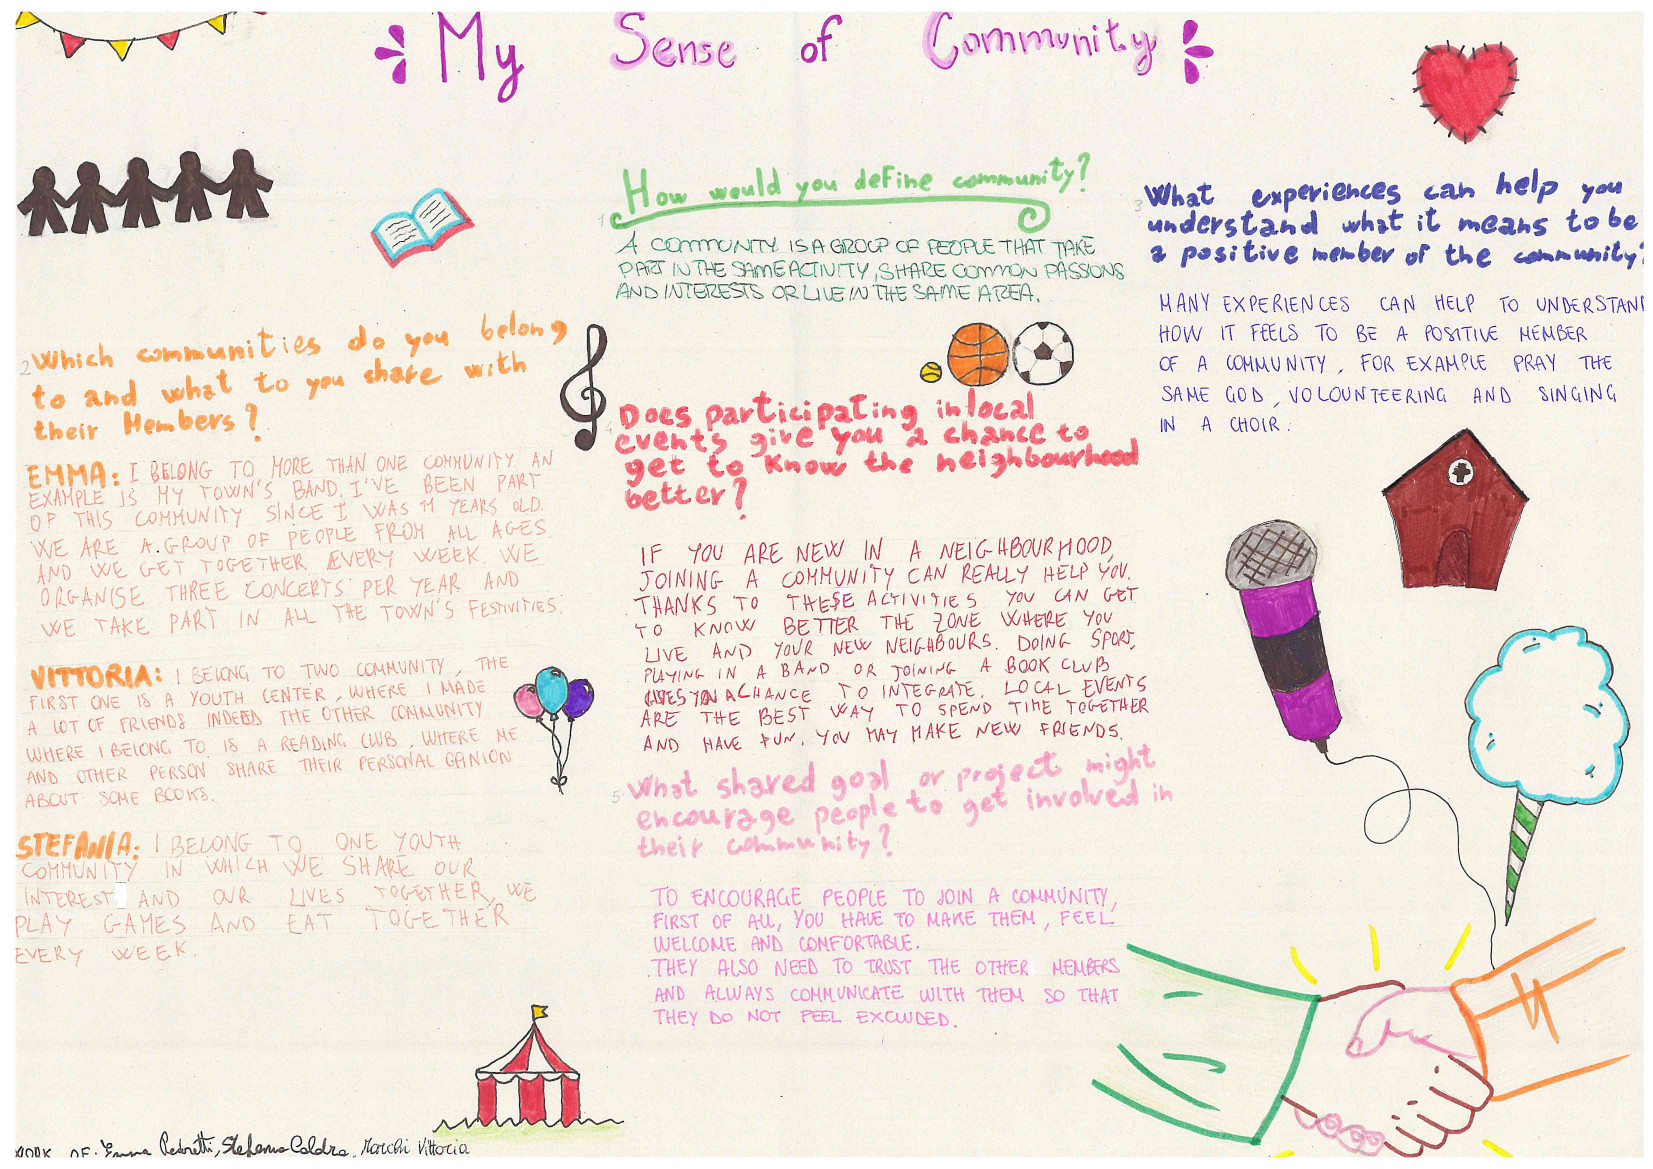 My Sense of Community
1 How would you define community?
A COMMUNITY IS A GROUP OF PEOPLE THAT TAKE
PART IN THE SAME ACTIVITY, SHARE COMMON PASSIONS
AND INTERESTS OR LIVE IN THE SAME AREA.
2 Which communities do you belong
to and what to you share with
their Members?
EMMA: I BELONG TO MORE THAN ONE COMMUNITY. AN
EXAMPLE IS MY TOWN'S BAND. I'VE BEEN PART
OF THIS COMMUNITY SINCE I WAS 11 YEARS OLD.
WE ARE A GROUP OF PEOPLE FROM ALL AGES
AND WE GET TOGETHER EVERY WEEK. WE
ORGANISE THREE CONCERTS PER YEAR AND
WE TAKE PART IN ALL THE TOWN'S FESTIVITIES.
VITTORIA: I BELONG TO TWO COMMUNITY, THE
FIRST ONE IS A YOUTH CENTER, WHERE I MADE
A LOT OF FRIENDS INDEED THE OTHER COMMUNITY
WHERE I BELONG TO IS A READING CLUB, WHERE ME
AND OTHER PERSON SHARE THEIR PERSONAL OPINION
ABOUT SOME BOOKS.
STEFANIA: I BELONG TO ONE YOUTH
COMMUNITY IN WHICH WE SHARE OUR
INTEREST AND OUR LIVES TOGETHER, WE
PLAY GAMES AND EAT TOGETHER
EVERY WEEK.
3 What experiences can help you
understand what it means to be
a positive member of the community?
MANY EXPERIENCES CAN HELP TO UNDERSTAND
HOW IT FEELS TO BE A POSITIVE MEMBER
OF A COMMUNITY, FOR EXAMPLE PRAY THE
SAME GOD, VOLOUNTEERING AND SINGING
IN A CHOIR.
4 Does participating in local
events give you a chance to
get to know the neighbourhood
better?
IF YOU ARE NEW IN A NEIGHBOURHOOD,
JOINING A COMMUNITY CAN REALLY HELP YOU.
THANKS TO THESE ACTIVITIES YOU CAN GET
TO KNOW BETTER THE ZONE WHERE YOU
LIVE AND YOUR NEW NEIGHBOURS. DOING SPORT,
PLAYING IN A BAND OR JOINING A BOOK CLUB
GIVES YOU A CHANCE TO INTEGRATE. LOCAL EVENTS
ARE THE BEST WAY TO SPEND TIME TOGETHER
AND HAVE FUN. YOU MAY MAKE NEW FRIENDS.
5 What shared goal or project might
encourage people to get involved in
their community?
TO ENCOURAGE PEOPLE TO JOIN A COMMUNITY,
FIRST OF ALL, YOU HAVE TO MAKE THEM, FEEL
WELCOME AND COMFORTABLE.
THEY ALSO NEED TO TRUST THE OTHER MEMBERS
AND ALWAYS COMMUNICATE WITH THEM SO THAT
THEY DO NOT FEEL EXCLUDED.
WORK OF: Emma Pedretti, Stefania Caldra, Marchi Vittoria